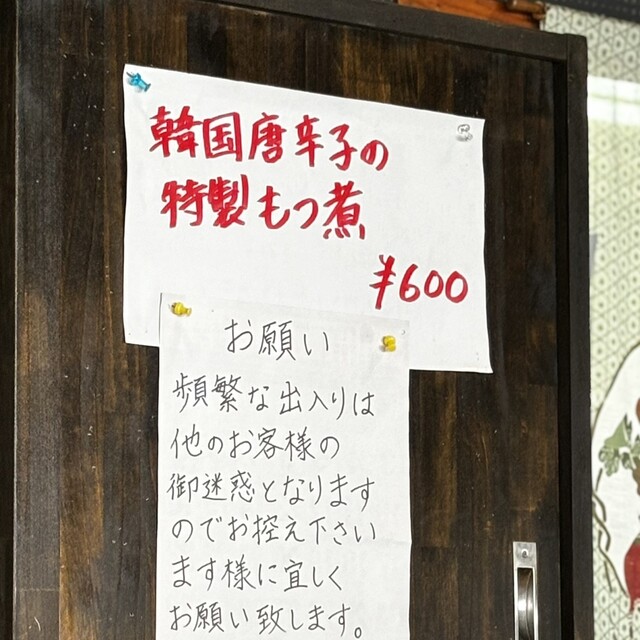 韓国唐辛子の
特製もつ煮
¥600
お願い
頻繁な出入りは
他のお客様の
御迷惑となります
のでお控え下さい
ます様に宜しく
お願い致します。